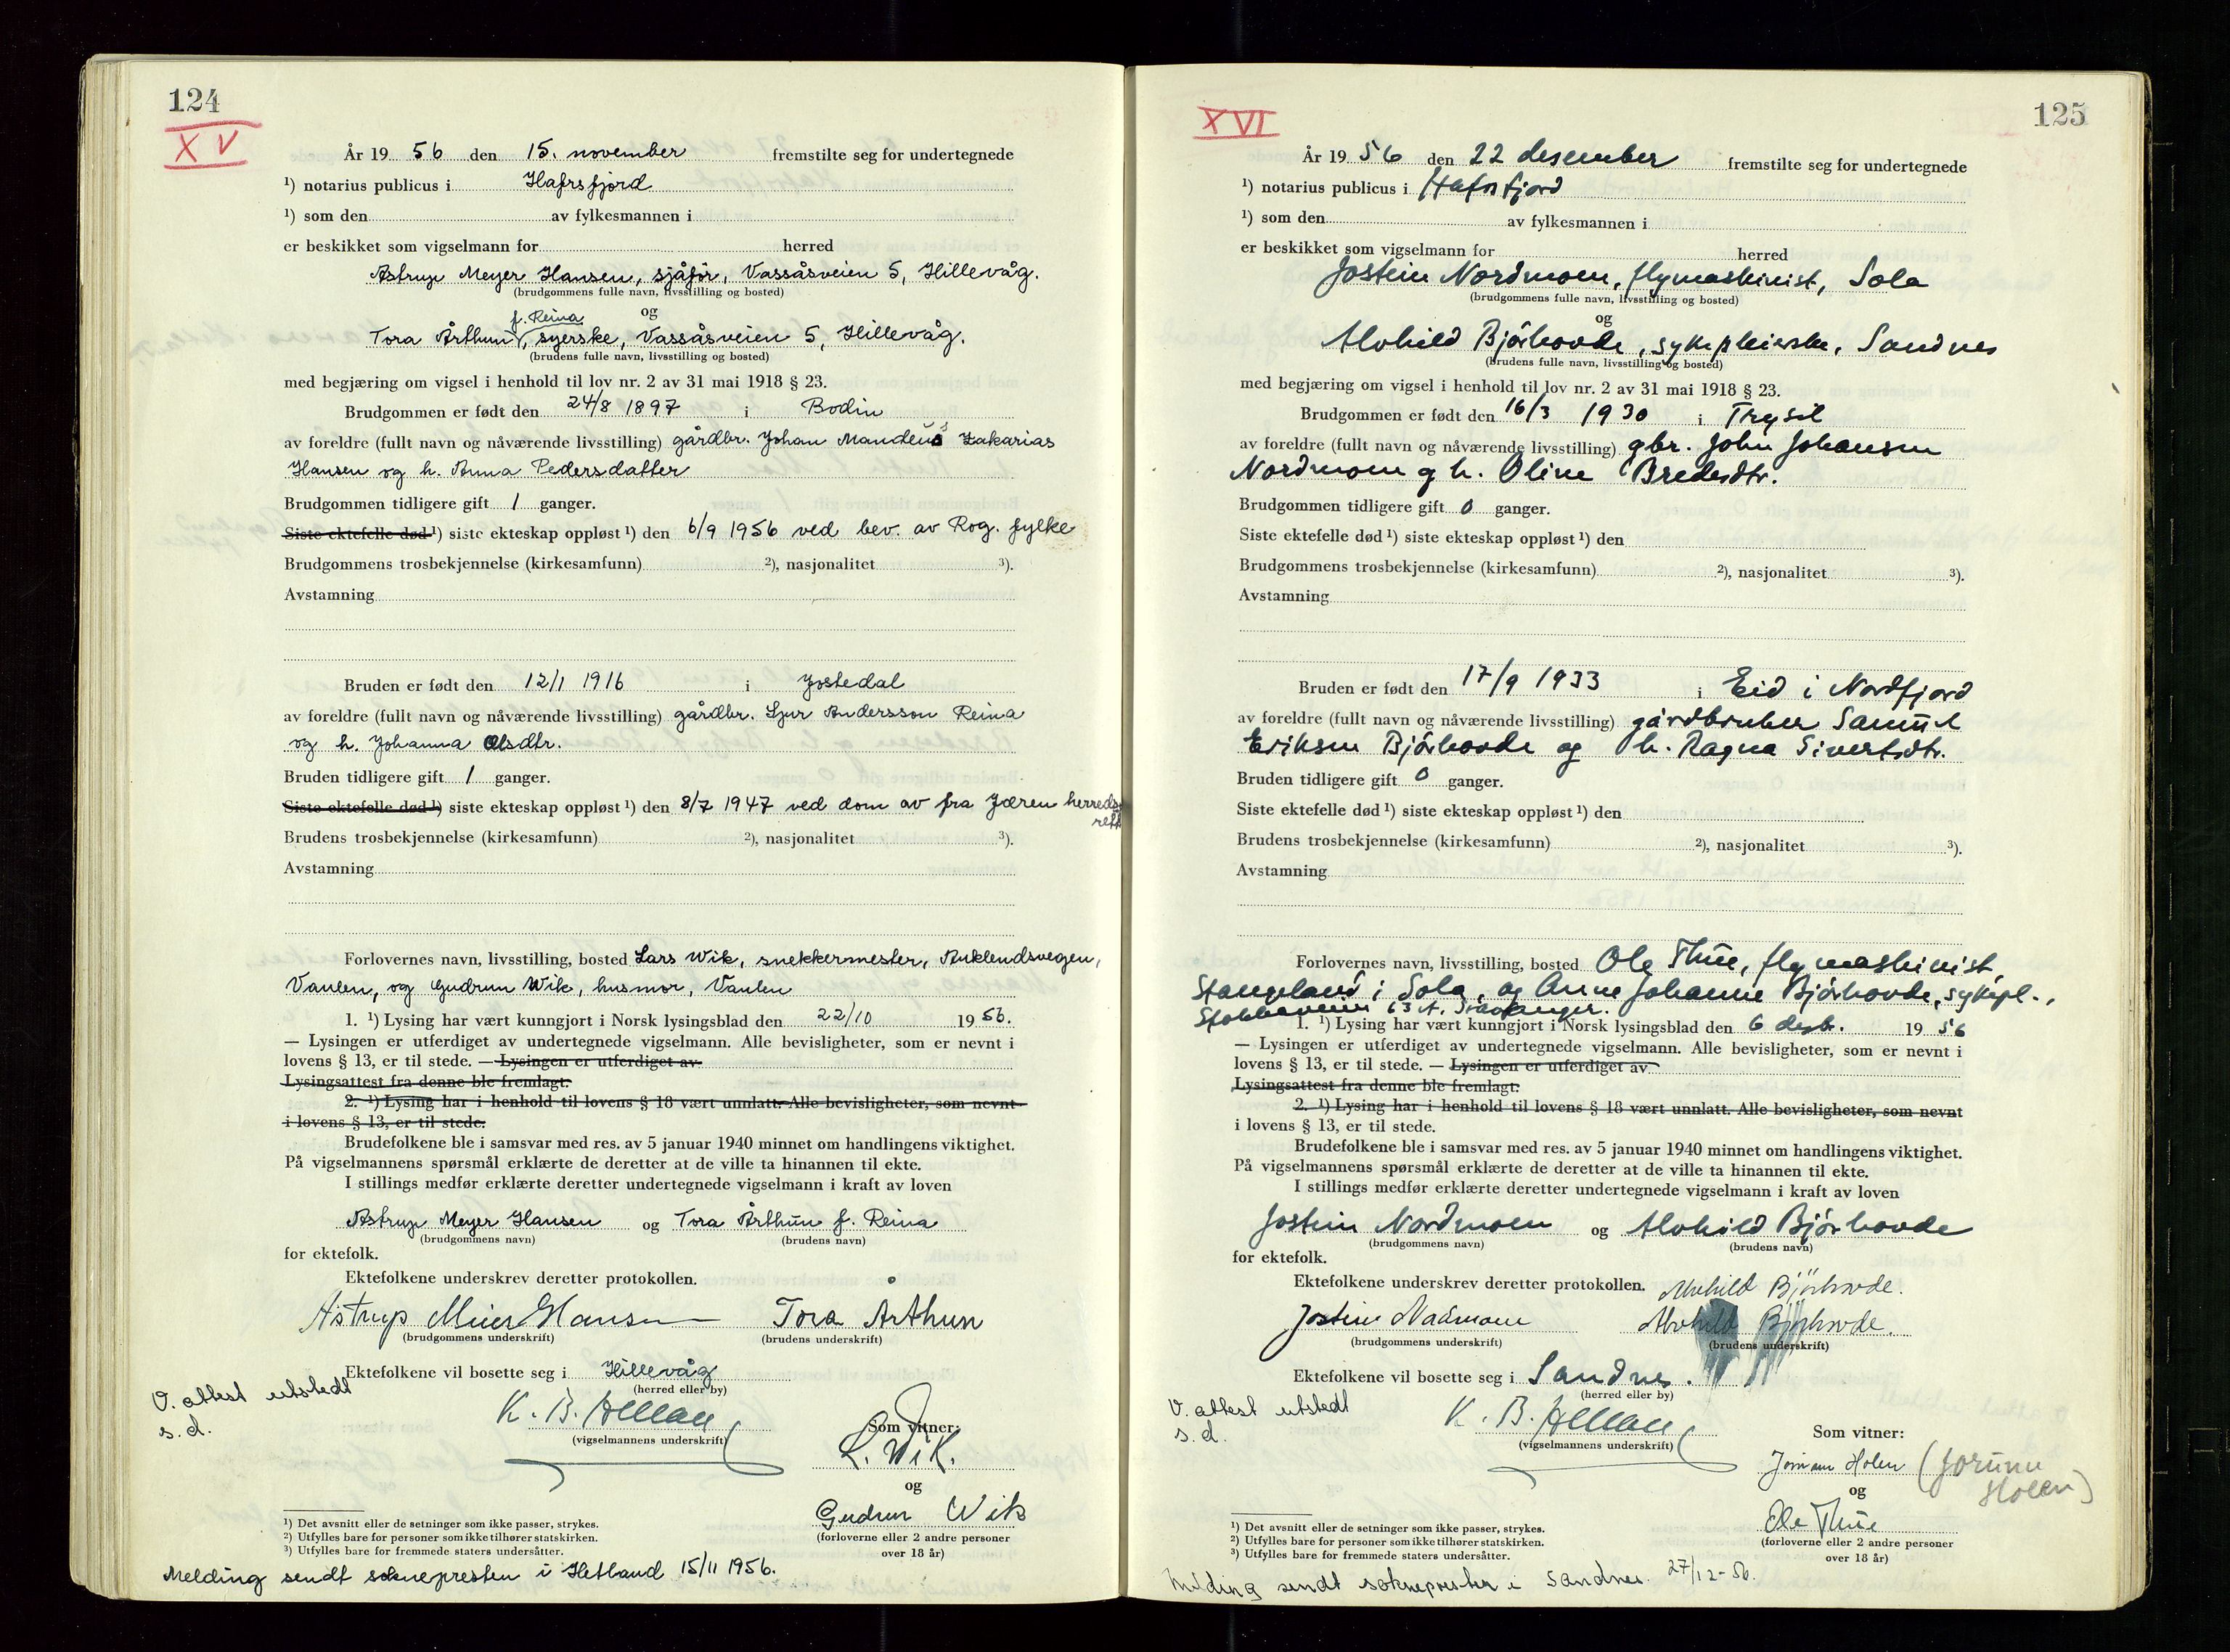 124
XV
År 19 56 den 15. november fremstilte seg for undertegnede
¹) notarius publicus i Hafrsfjord
¹) som den av fylkesmannen i
er beskikket som vigselmann for herred
Astrup Meyer Hansen, sjåfør, Vassåsveien 5, Hillevåg.
(brudgommens fulle navn, livsstilling og bosted)
og
f. Reina
Tora Årthun, syerske, Vassåsveien 5, Hillevåg.
(brudens fulle navn, livsstilling og bosted)
med begjæring om vigsel i henhold til lov nr. 2 av 31 mai 1918 § 23.
Brudgommen er født den 24/8 1897 i Bodin
av foreldre (fullt navn og nåværende livsstilling) gårdbr. Johan Mandeus Zakarias
Hansen og h. Anna Pedersdatter
Brudgommen tidligere gift 1 ganger.
Siste ektefelle død ¹) siste ekteskap oppløst ¹) den 6/9 1956 ved bev. av Rog. fylke
Brudgommens trosbekjennelse (kirkesamfunn) ²), nasjonalitet ³).
Avstamning
Bruden er født den 12/1 1916 i Jostedal
av foreldre (fullt navn og nåværende livsstilling) gårdbr. Sjur Andersson Reina
og h. Johanna Olsdtr.
Bruden tidligere gift 1 ganger.
Siste ektefelle død ¹) siste ekteskap oppløst ¹) den 8/7 1947 ved dom av fra Jæren herreds
rett
Brudens trosbekjennelse (kirkesamfunn) ²), nasjonalitet ³).
Avstamning
Forlovernes navn, livsstilling, bosted Lars Wik, snekkermester, Auklendsvegen,
Vaulen, og Gudrun Wik, husmor, Vaulen
1. ¹) Lysing har vært kunngjort i Norsk lysingsblad den 22/10 19 56.
— Lysingen er utferdiget av undertegnede vigselmann. Alle bevisligheter, som er nevnt i
lovens § 13, er til stede. — Lysingen er utferdiget av
Lysingsattest fra denne ble fremlagt.
2. ¹) Lysing har i henhold til lovens § 18 vært unnlatt. Alle bevisligheter, som nevnt
i lovens § 13, er til stede.
Brudefolkene ble i samsvar med res. av 5 januar 1940 minnet om handlingens viktighet.
På vigselmannens spørsmål erklærte de deretter at de ville ta hinannen til ekte.
I stillings medfør erklærte deretter undertegnede vigselmann i kraft av loven
Astrup Meyer Hansen og Tora Årthun f. Reina
(brudgommens navn) (brudens navn)
for ektefolk.
Ektefolkene underskrev deretter protokollen.
Astrup Meier Hansen Tora Årthun
(brudgommens underskrift) (brudens underskrift)
Ektefolkene vil bosette seg i Hillevåg
(herred eller by)
V. attest utstedt
s.d.
K. B.
(vigselmannens underskrift)
Som vitner:
L. Wik.
og
Gudrun Wik
(forloverne eller 2 andre personer
over 18 år)
¹) Det avsnitt eller de setninger som ikke passer, strykes.
²) Utfylles bare for personer som ikke tilhører statskirken.
³) Utfylles bare for fremmede staters undersåtter.
Melding sendt soknepresten i Hetland 15/11 1956.
125
XVI
År 19 56 den 22 desember fremstilte seg for undertegnede
¹) notarius publicus i Hafrsfjord
¹) som den av fylkesmannen i
er beskikket som vigselmann for herred
Jostein Nordmoen, flymaskinist, Sola
(brudgommens fulle navn, livsstilling og bosted)
og
Alvhild Bjørhovde, sykepleierske, Sandnes
(brudens fulle navn, livsstilling og bosted)
med begjæring om vigsel i henhold til lov nr. 2 av 31 mai 1918 § 23.
Brudgommen er født den 16/3 1930 i Trysil
av foreldre (fullt navn og nåværende livsstilling) gbr. John Johansen
Nordmoen og h. Oline Bredesdtr.
Brudgommen tidligere gift 0 ganger.
Siste ektefelle død ¹) siste ekteskap oppløst ¹) den
Brudgommens trosbekjennelse (kirkesamfunn) ²), nasjonalitet ³).
Avstamning
Bruden er født den 17/9 1933 i Eid i Nordfjord
av foreldre (fullt navn og nåværende livsstilling) gårdbruker Samuel
Eriksen Bjørhovde og h. Ragna Sivertsdtr.
Bruden tidligere gift 0 ganger.
Siste ektefelle død ¹) siste ekteskap oppløst ¹) den
Brudens trosbekjennelse (kirkesamfunn) ²), nasjonalitet ³).
Avstamning
Forlovernes navn, livsstilling, bosted Ole Thue, flymaskinist,
Stangeland i Sola, og Anne Johanne Bjørhovde, sykepl.,
Stokkaveien 63 A. Stavanger.
1. ¹) Lysing har vært kunngjort i Norsk lysingsblad den 6 desbr. 19 56
— Lysingen er utferdiget av undertegnede vigselmann. Alle bevisligheter, som er nevnt i
lovens § 13, er til stede. — Lysingen er utferdiget av
Lysingsattest fra denne ble fremlagt.
2. ¹) Lysing har i henhold til lovens § 18 vært unnlatt. Alle bevisligheter, som nevnt
i lovens § 13, er til stede.
Brudefolkene ble i samsvar med res. av 5 januar 1940 minnet om handlingens viktighet.
På vigselmannens spørsmål erklærte de deretter at de ville ta hinannen til ekte.
I stillings medfør erklærte deretter undertegnede vigselmann i kraft av loven
Jostein Nordmoen og Alvhild Bjørhovde
(brudgommens navn) (brudens navn)
for ektefolk.
Ektefolkene underskrev deretter protokollen. Alvhild Bjørhovde.
Jostein Nordmoen Alvhild Bjørhovde.
(brudgommens underskrift) (brudens underskrift)
Ektefolkene vil bosette seg i Sandnes.
(herred eller by)
V. attest utstedt
s.d.
K. B.
(vigselmannens underskrift)
Som vitner:
Jorunn Holen (Jorunn
Holen)
og
Ole Thue
(forloverne eller 2 andre personer
over 18 år)
¹) Det avsnitt eller de setninger som ikke passer, strykes.
²) Utfylles bare for personer som ikke tilhører statskirken.
³) Utfylles bare for fremmede staters undersåtter.
Melding sendt soknepresten i Sandnes 27/12-56.